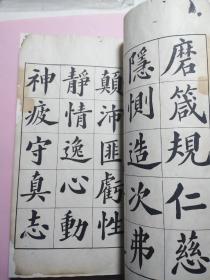 磨箴規仁慈
隱惻造次弗
顛沛匪虧性
靜情逸心動
神疲守真志